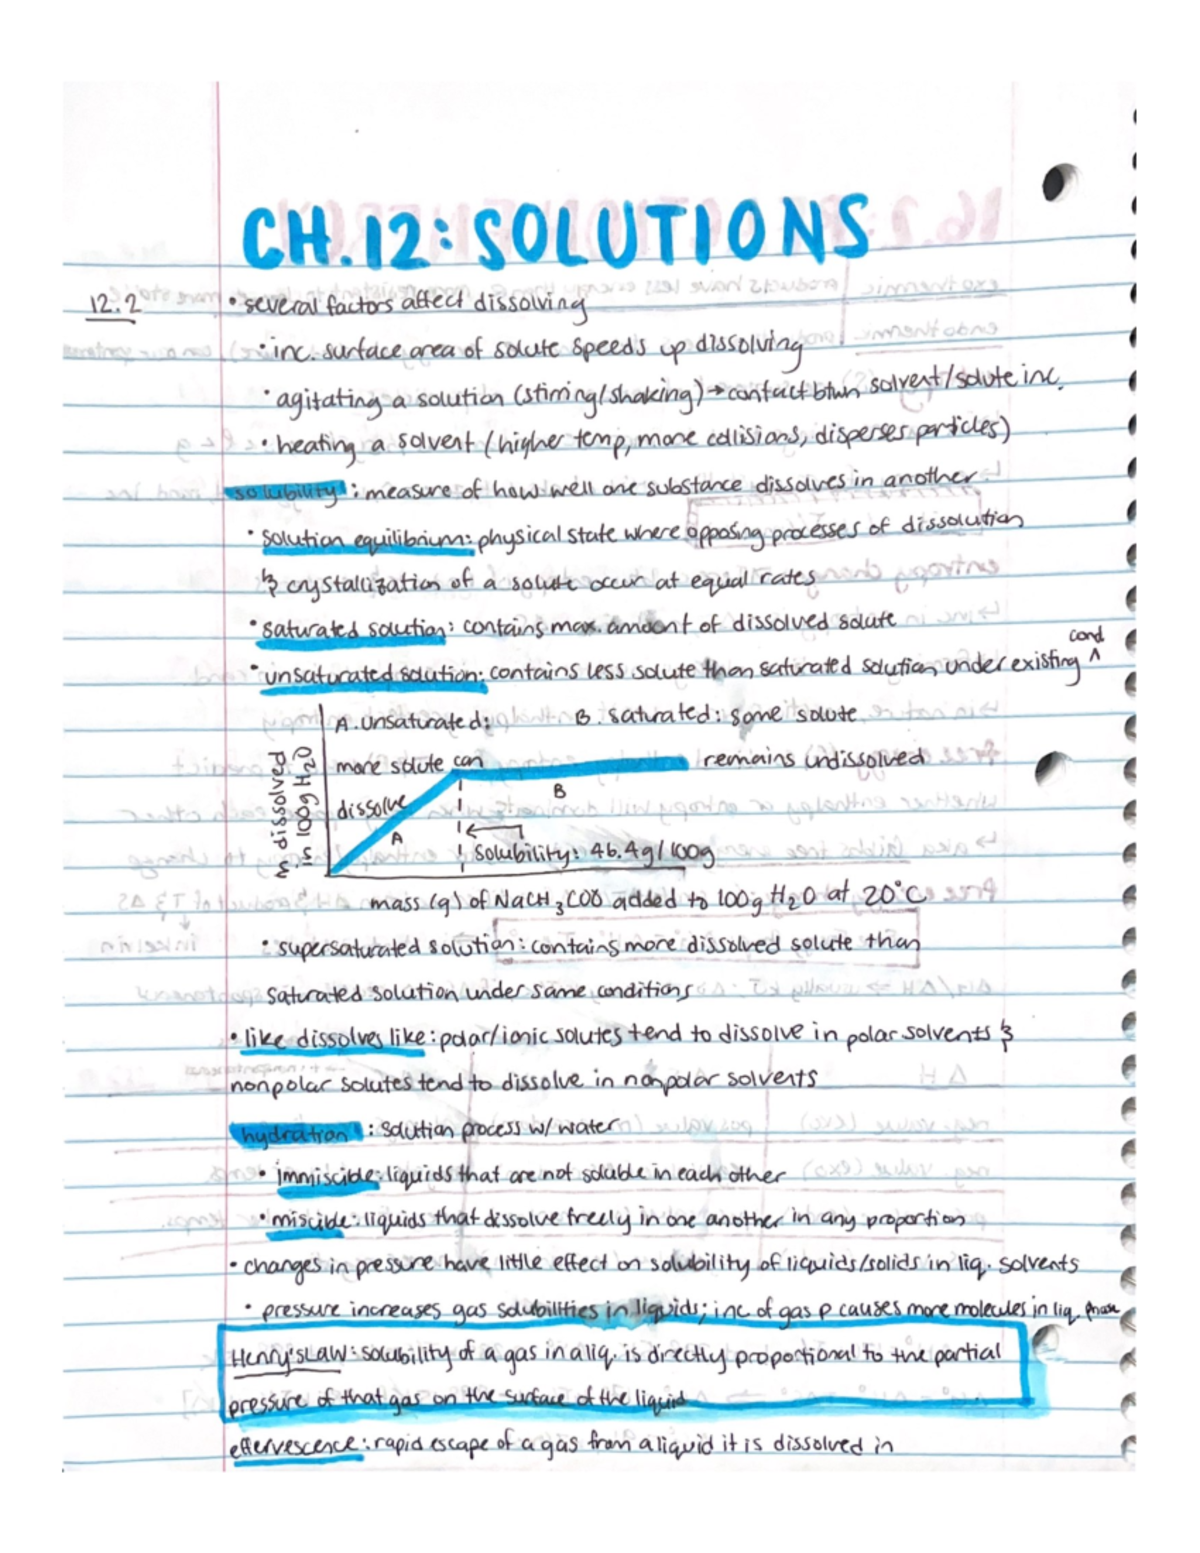 CH.12: SOLUTIONS
12.2
• several factors affect dissolving
• inc. surface area of solute speeds up dissolving
• agitating a solution (stirring/shaking) → contact btwn solvent/solute inc.
• heating a solvent (higher temp, more collisions, disperses particles)
solubility: measure of how well one substance dissolves in another
• solution equilibrium: physical state where opposing processes of dissolution
& crystallization of a solute occur at equal rates
• saturated solution: contains max. amount of dissolved solute
cond
• unsaturated solution: contains less solute than saturated solution under existing ^
A. unsaturated: B. saturated: some solute
more solute can remains undissolved
dissolve
A
B
dissolved
in 100g H2O
Solubility: 46.4g/100g
mass (g) of NaCH3COO added to 100g H2O at 20°C
• supersaturated solution: contains more dissolved solute than
saturated solution under same conditions
• like dissolves like: polar/ionic solutes tend to dissolve in polar solvents &
nonpolar solutes tend to dissolve in nonpolar solvents
hydration: solution process w/ water
• immiscible: liquids that are not soluble in each other
• miscible: liquids that dissolve freely in one another in any proportion
• changes in pressure have little effect on solubility of liquids/solids in liq. solvents
• pressure increases gas solubilities in liquids; inc of gas p causes more molecules in liq. phase
Henry's LAW: solubility of a gas in a liq. is directly proportional to the partial
pressure of that gas on the surface of the liquid
effervescence: rapid escape of a gas from a liquid it is dissolved in